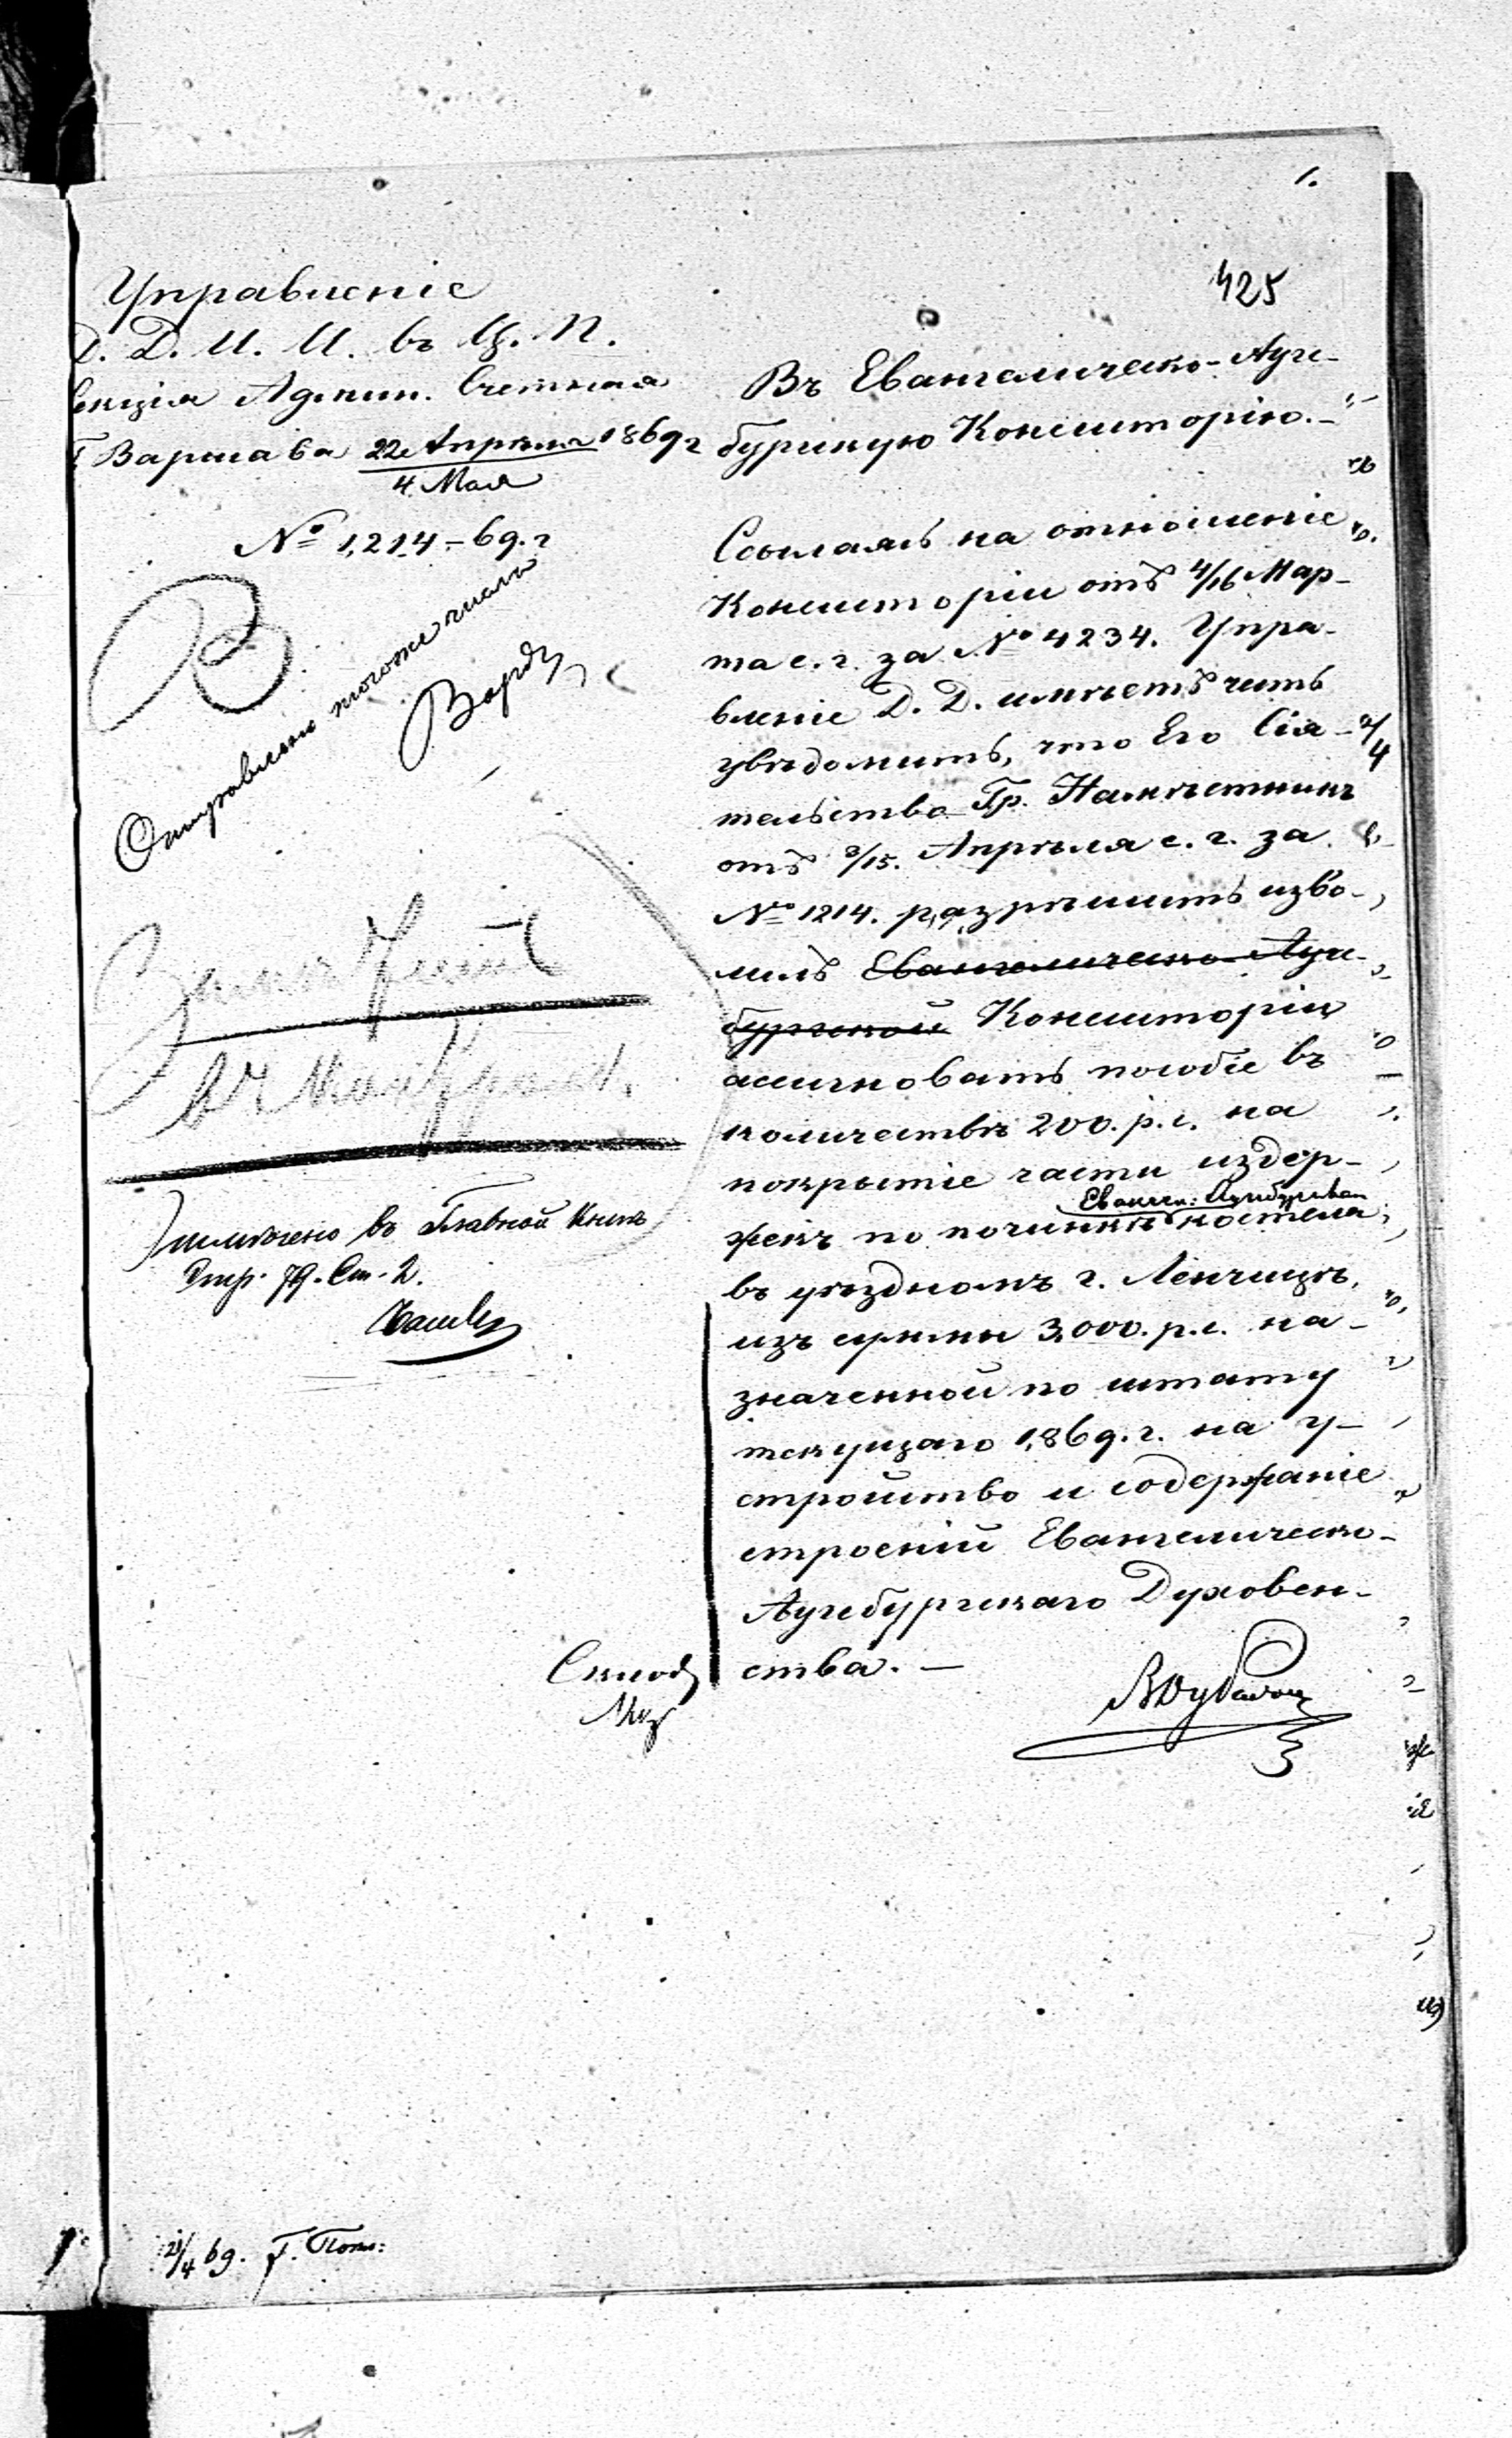 1.
425
Управленіе
Д. Д. И. И. въ Ц. П.
Секція Админ. Счетная
Г. Варшава 22 Апрѣля 1869 г
4 Мая
№ 1,214 – 69. г
Отправлено тогоже числа
Отмѣчено въ Главной Книгѣ
Стр. 79. Ст. 2.
Въ Евангелическо-Аугс-
бургскую Консисторію. –
Ссылаясь на отношеніе
Консисторіи отъ 4/16 Мар-
та с. г. за № 4234. Упра-
вленіе Д. Д. имѣетъ честь
увѣдомить, что Его Сія-
тельство Гр. Намѣстникъ
отъ 3/15. Апрѣля с. г. за
№ 1214. разрѣшить изво-
лилъ Евангелическо-Аугс-
бургской Консисторіи
ассигновать пособіе въ
количествѣ 200. р. с. на
покрытіе части издер-
Евангел: Аугсбургскаго
жекъ по починкѣ костела
въ уѣздномъ г. Ленчицѣ,
изъ суммы 3,000. р. с. на-
значенной по штату
текущаго 1,869. г. на у-
стройство и содержаніе
строеній Евангелическо-
Аугсбургскаго Духовен-
ства. –
21/4 69.